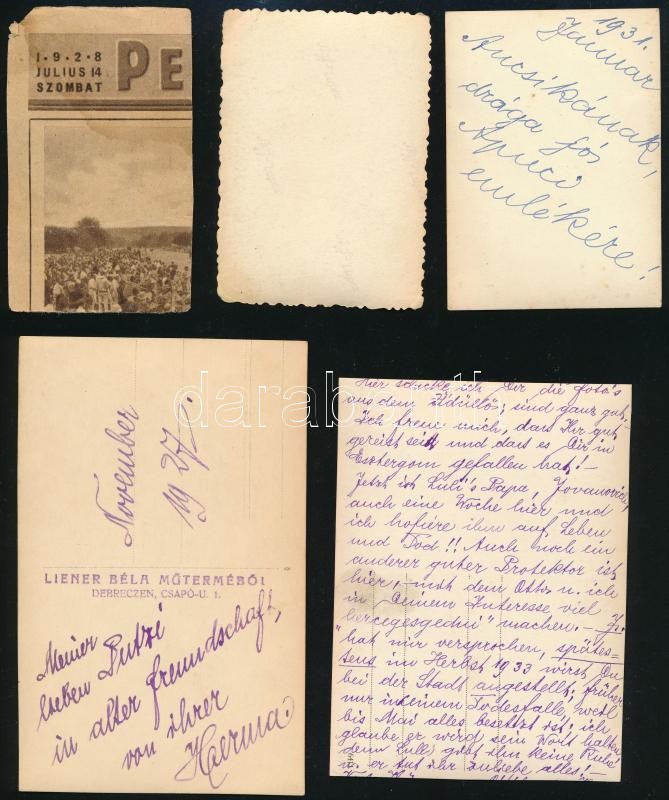 1·9·2·8
JULIUS 14
SZOMBAT
PE
1931.
Januar
Ancsikának,
drága jós
Apuci
emlékére!
darabanth
November
1927.
LIENER BÉLA MŰTERMÉBŐL
DEBRECZEN, CSAPÓ-U. 1.
Meiner
lieben Putzi
in alter freundschaft,
von ihrer
Herma.
Hier schicke ich Dir die foto's
aus dem; sind ganz gut.
Ich freue mich, dass Ihr gut
gereist seit und dass es Dir in
Esztergom gefallen hat!-
Jetzt ist Luli's Papa, Jovanovich,
auch eine Woche hier und
ich hofiere ihm auf Leben
und Tod!! Auch noch ein
anderer guter Protektor ist
hier, mit dem Otto u. ich
in Deinem Interesse viel
machen. -
"hat mir versprochen, spätes-
tens im Herbst 1933 wirst Du
bei der Stadt angestellt; früher
nur in einem Todesfalle, weil
bis Mai alles besetzt ist; ich
glaube er wird sein Wort halten
denn Luli gibt ihm keine Ruhe
u. er tut ihr zuliebe alles!-